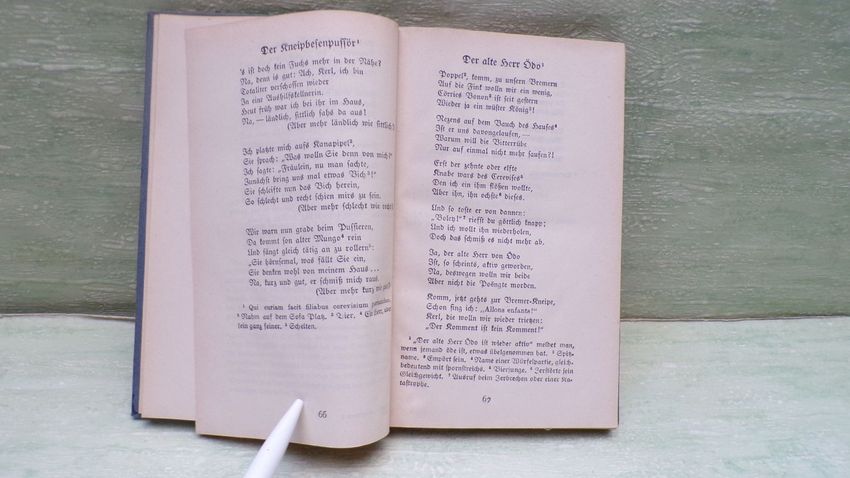 Der Kneipbesenpufför¹
's ist doch kein Fuchs mehr in der Nähe?
Na, denn is gut: Ach, Kerl, ich bin
Totaliter verschossen wieder
In eine Aushilfskellnerin.
Heut früh war ich bei ihr im Haus,
Na, — ländlich, sittlich sahs da aus!
(Aber mehr ländlich wie sittlich!)
Ich platzte mich aufs Kanapipel²,
Sie sprach: „Was wolln Sie denn von mich?“
Ich sagte: „Fräulein, nu man sachte,
Zunächst bring uns mal etwas Bich³!“
Sie schleifte nun das Bich herein,
So schlecht und recht schien mirs zu sein.
(Aber mehr schlecht wie recht!)
Wie warn nun grade beim Pussieren,
Da kommt son alter Mungo⁴ rein
Und fängt gleich tätig an zu rollern⁵:
„Sie hörnsemal, was fällt Sie ein,
Sie denken wohl von meinem Haus ...
Na, kurz und gut, er schmiß mich raus.
(Aber mehr kurz wie gut!)
¹ Qui curiam facit filiabus cerevisium
² Nahm auf dem Sofa Platz. ³ Bier. ⁴ Ein Herr, aber
kein ganz feiner. ⁵ Schelten.
66
Der alte Herr Ödo¹
Poppel², komm, zu unsern Bremern
Auf die Fink wolln wir ein wenig,
Cörries Bonon² ist seit gestern
Wieder ja ein wüster König³!
Nezens auf dem Bauch des Hauses⁴
Ist er uns davongelaufen, —
Warum will die Bitterrübe
Nur auf einmal nicht mehr saufen?!
Erst der zehnte oder elfte
Knabe wars des Cerevises⁵
Den ich ein ihm flößen wollte,
Aber ihn, ihn ochste⁶ dieses.
Und so toste er von dannen:
„Boley!“⁷ riefst du göttlich knapp;
Und ich wollt ihn wiederholen,
Doch das schmiß es nicht mehr ab.
Ja, der alte Herr von Ödo
Ist, so scheints, aktiv geworden,
Na, deswegen wolln wir beide
Aber nicht die Poëngte morden.
Komm, jetzt gehts zur Bremer-Kneipe,
Schon sing ich: „Allons enfants!“
Kerl, die wolln wir wieder trietzen:
„Der Komment ist kein Komment!“
¹ „Der alte Herr Ödo ist wieder aktiv“ meldet man,
wenn jemand öde ist, etwas übelgenommen hat. ² Spitz-
name. ³ Empört sein. ⁴ Name einer Würfelpartie, gleich-
bedeutend mit spornstreichs. ⁵ Bierjunge. ⁶ Zerstörte sein
Gleichgewicht. ⁷ Ausruf beim Zerbrechen oder einer Ka-
tastrophe.
67